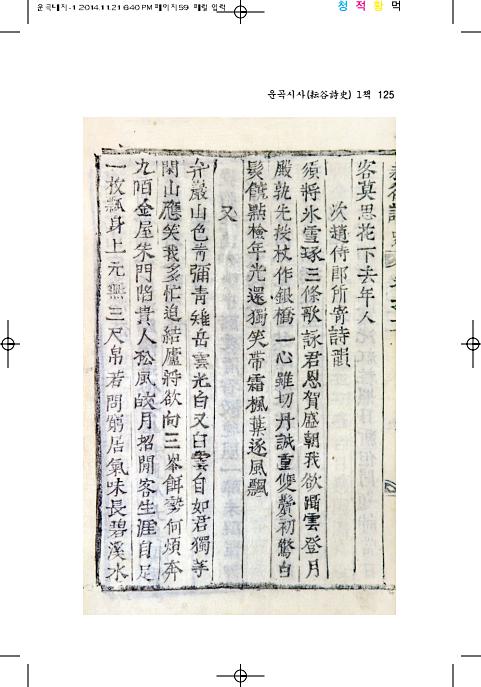 운곡시사-1 2014.11.21 6:40 PM 페이지59 매킬 입력
청 적 황 먹
운곡시사(耘谷詩史) 1책 125
客莫思花下去年人
次趙侍郎所寄詩韻
須將氷雪琢三條歌詠君恩賀盛朝我欲躡雲登月
殿孰先投杖作銀橋一心雖切丹誠重雙鬢初驚白
髮饒點檢年光還獨笑帶霜楓葉逐風飄
又
弁巖山色靑彌靑雉岳雲光白又白雲自如君獨等
閑山應笑我多忙迫結廬將欲向三峯餌勢何煩奔
九陌金屋朱門陷貴人松風皎月招閒客生涯自足
一枚瓢身上元無三尺帛若問窮居氣味長碧溪水